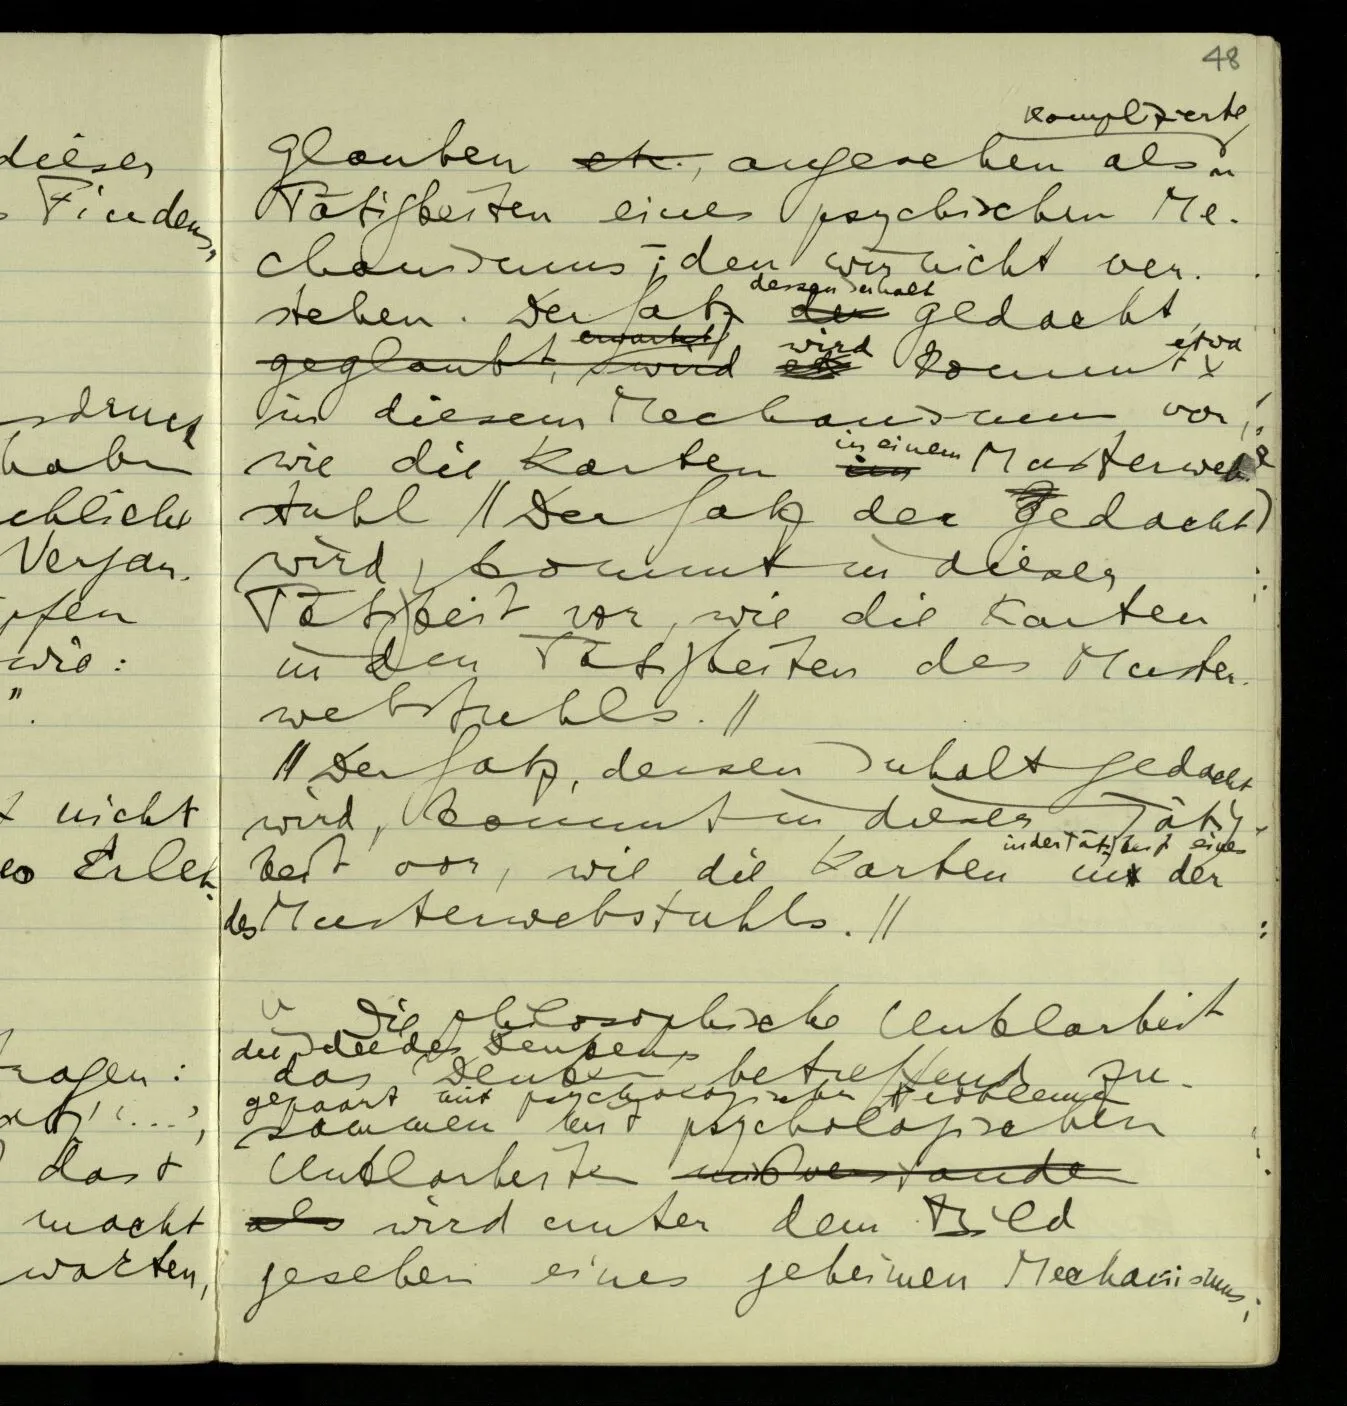 48
dieser
Findens,
sdruck
haben
chlichs
Verjan-
pfen
wie:
".
nicht
Erleb-
ragen:
'...',
dast
macht
warten,
komplizierte
Glauben etc., angesehen als
Tätigkeiten eines psychischen Me-
chanismus; den wir nicht ver-
stehen. Der Satz der dessen Inhalt gedacht,
geglaubt, erwartet, wird etc wird kommt etwa
in diesem Mechanismus vor,
wie die Karten im in einem Musterweb-
stuhl // Der Satz der gedacht
wird, kommt in dieser
Tätigkeit vor, wie die Karten
in den Tätigkeiten des Muster-
webstuhls. //
// Der Satz, dessen Inhalt gedacht
wird, kommt in dieser Tätig-
keit vor, wie die Karten in der
in der Tätigkeit eines
des Musterwebstuhls. //
Die philosophische Unklarheit
die Idee des Denkens
das Denken betreffend zu-
gepaart mit psychologischen Problemen
sammen mit psychologischen
Unklarheiten mißverstanden
als wird unter dem Bild
gesehen eines geheimen Mechanismus;